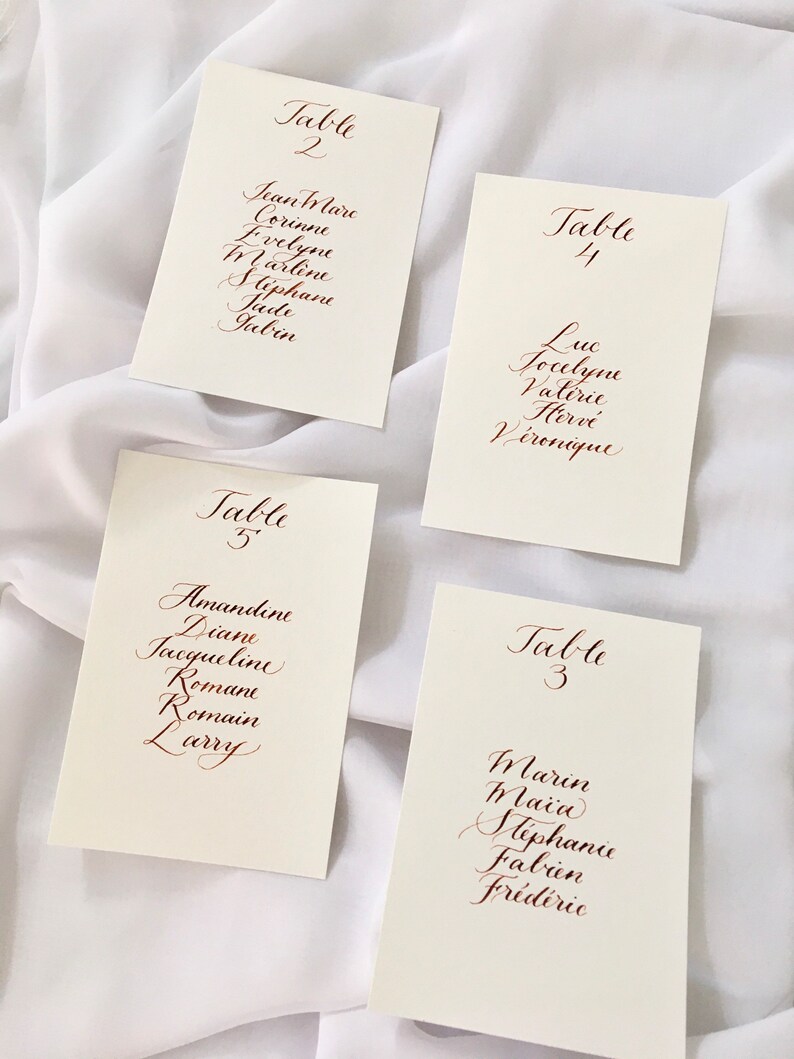 Table
2
Jean Marc
Corinne
Evelyne
Marlène
Stéphane
Jade
Gabin
Table
4
Luc
Jocelyne
Valérie
Hervé
Véronique
Table
5
Amandine
Diane
Jacqueline
Romane
Romain
Larry
Table
3
Marin
Maïa
Stéphanie
Fabien
Frédéric